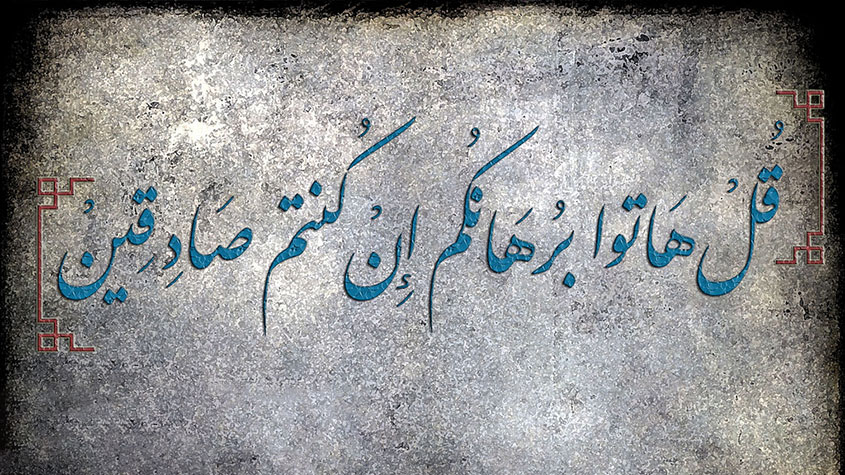 قُلْ هَاتوا بُرهَانكُم إِنْ كُنتم صَادِقِينْ